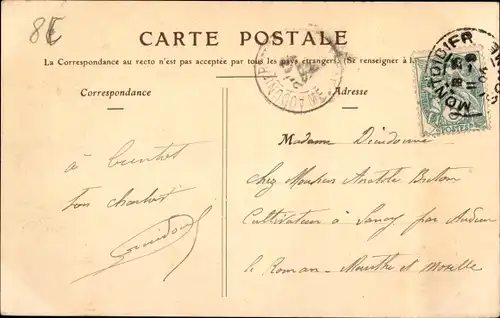 8£
CARTE POSTALE
La Correspondance au recto n'est pas acceptée par tous les pays étrangers. (Se renseigner à l
Correspondance
Adresse
MONTDIDIER
POSTES
à bientôt
ton
Madame Dieudonné
chez Monsieur Anatole
Cultivateur à Sancy par Audun
le Roman - Meurthe et Moselle